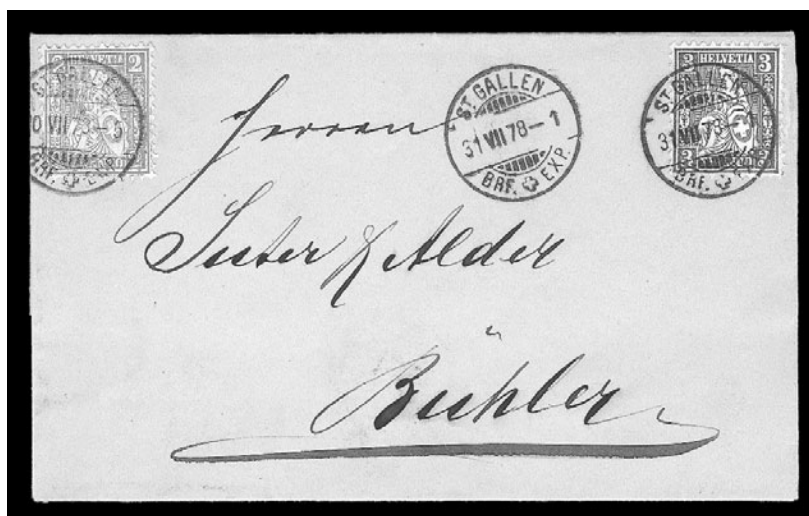 2
HELVETIA
ST. GALLEN
VII 78
BRF. EXP.
ST. GALLEN
31 VII 78 – 1
BRF. EXP.
3 HELVETIA 3
ST. GALLEN
31 VII 78 – 1
BRF.
Herren
Suter & Alder
Bühler